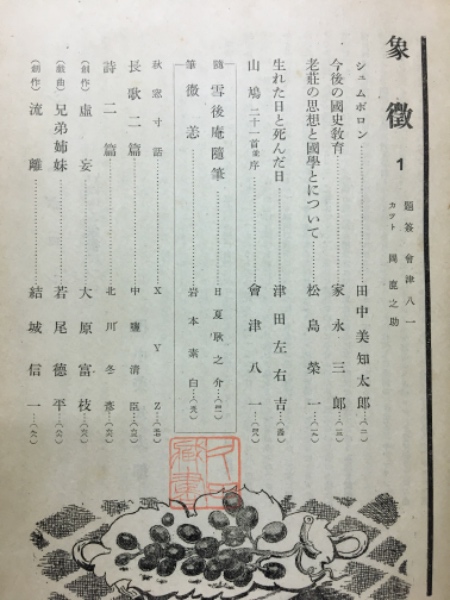 象徴 1
題簽 會津八一
カツト 岡鹿之助
シュムボロン……田中美知太郎…(二)
今後の國史敎育……家永三郎…(三)
老莊の思想と國學とについて……松島榮一…(元)
生れた日と死んだ日……津田左右吉
山鳩 二十一首並序……會津八一
隨筆
雪後庵隨筆……日夏耿之介
微恙……岩本素白
秋窓寸話……X Y Z
長歌二篇……中 清臣
詩二篇……北川冬彥
(創作) 虛妄……大原富枝
(戯曲) 兄弟姉妹……若尾德平
(創作) 流離……結城信一